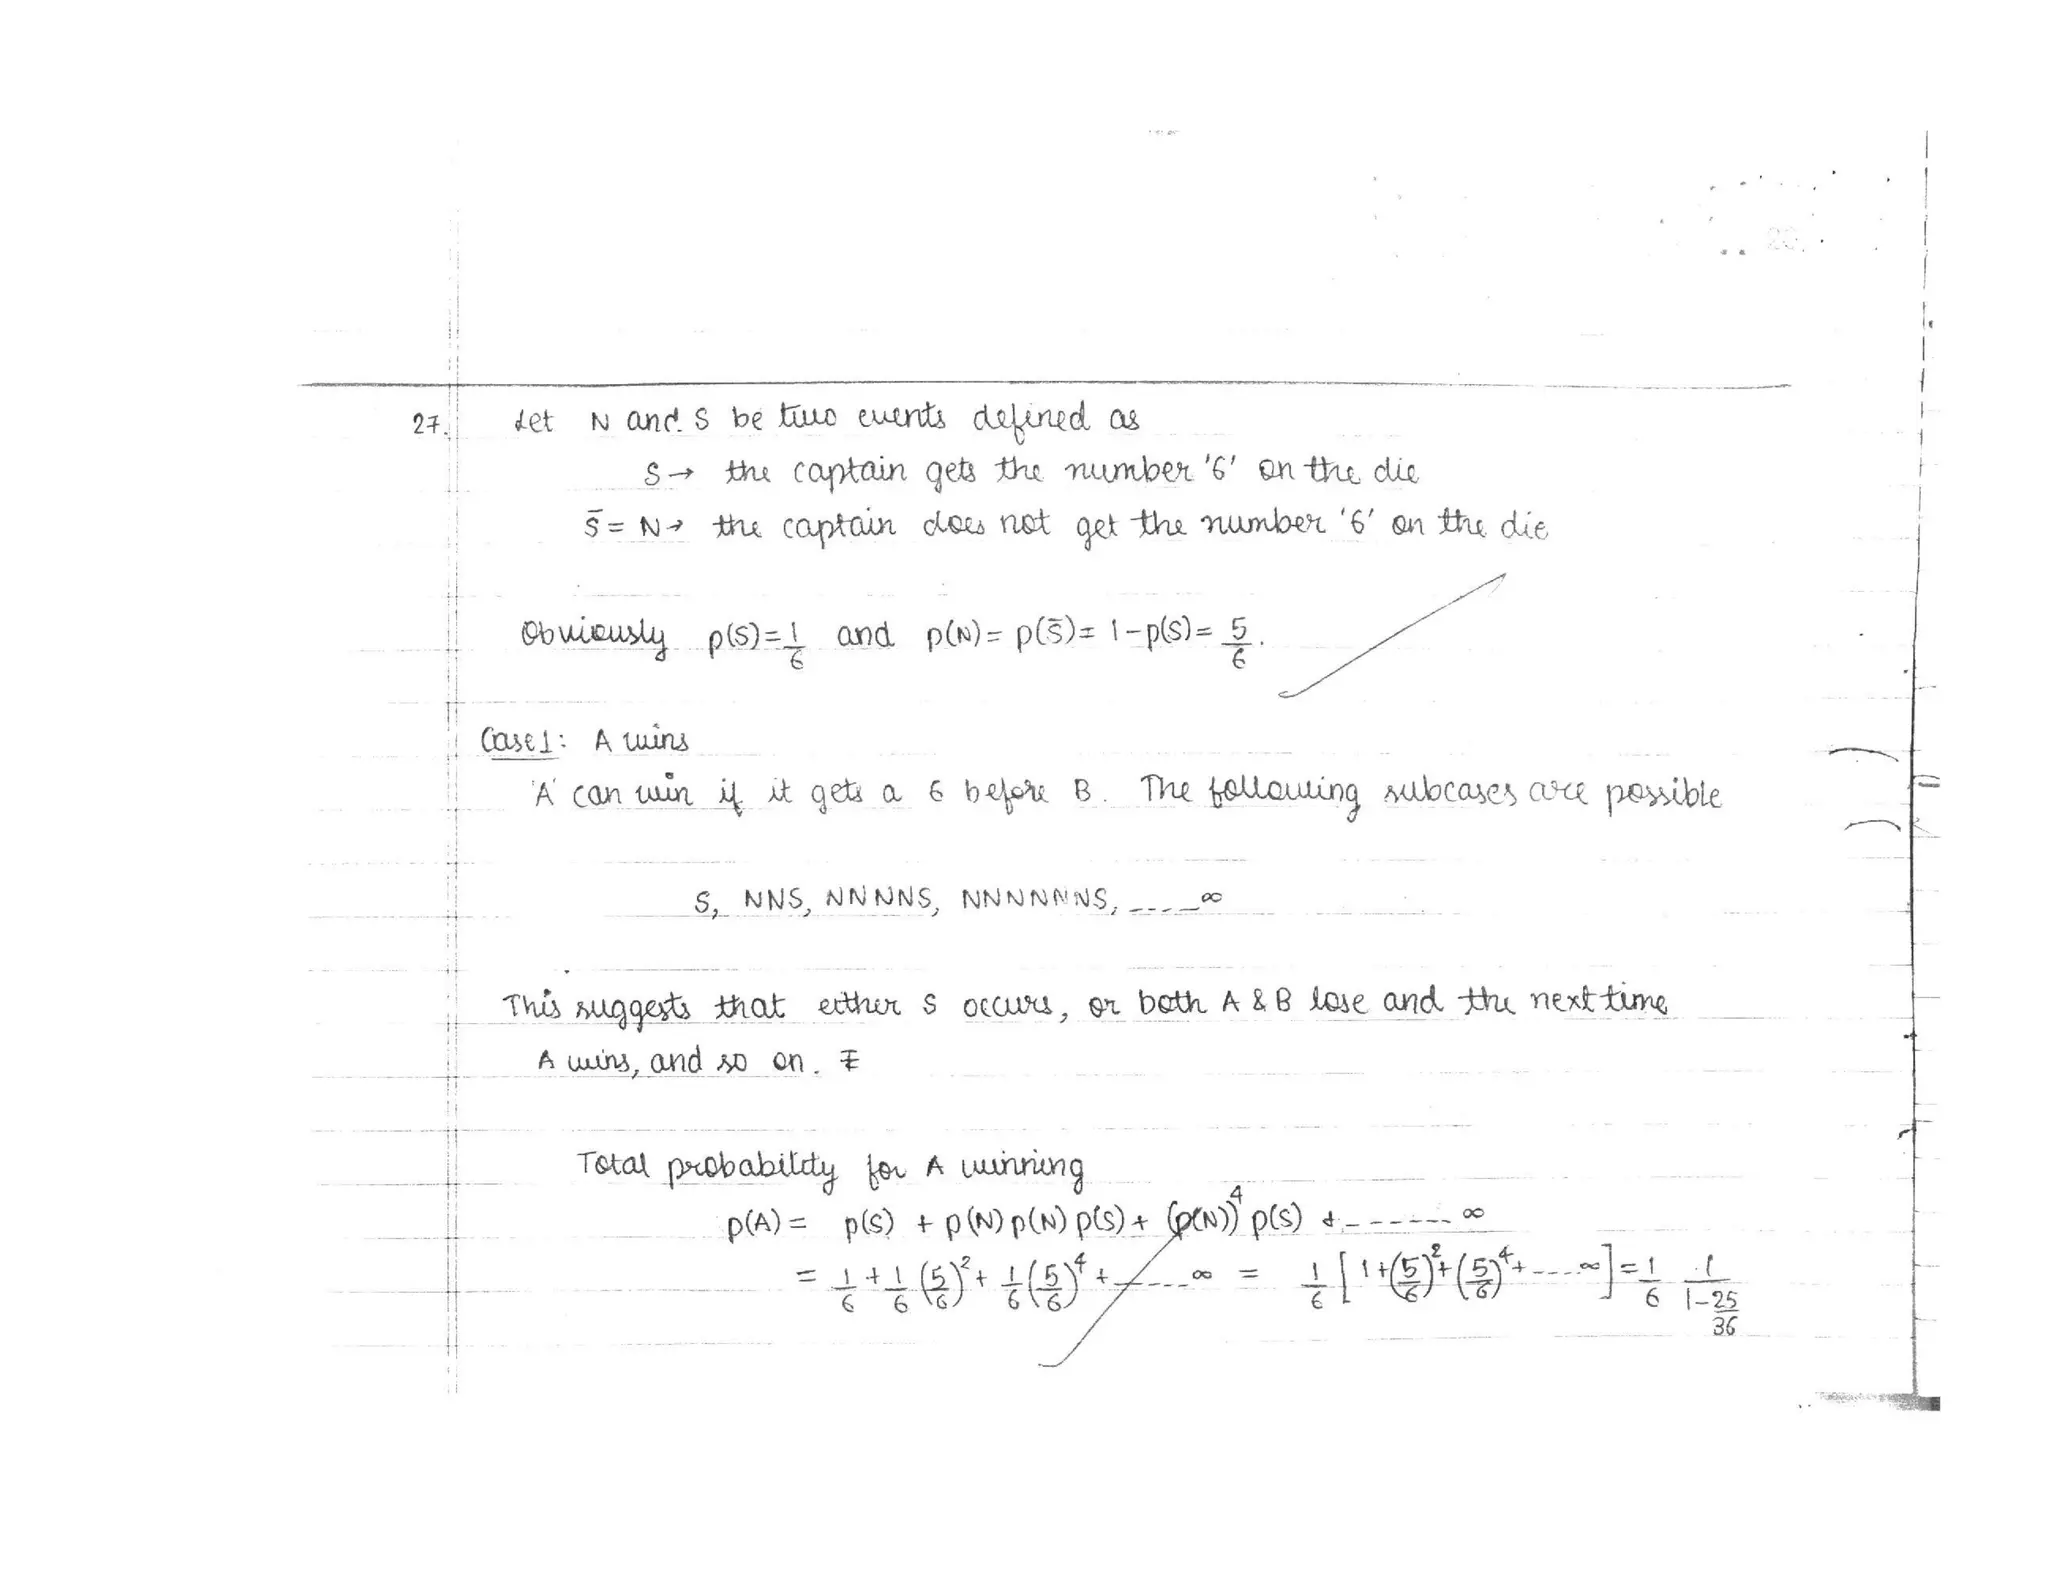 27. Let N and S be two events defined as
S → the captain gets the number '6' on the die
S̄ = N → the captain does not get the number '6' on the die
Obviously p(S) = 1/6 and p(N) = p(S̄) = 1 - p(S) = 5/6.
Case 1: A wins
'A' can win if it gets a 6 before B. The following subcases are possible
S, NNS, NNNNS, NNNNNNS, ---- ∞
This suggests that either S occurs, or both A & B lose and the next time
A wins, and so on.
Total probability for A winning
p(A) = p(S) + p(N) p(N) p(S) + (p(N))⁴ p(S) + ------- ∞
= 1/6 + 1/6 (5/6)² + 1/6 (5/6)⁴ + ---- ∞ = 1/6 [1 + (5/6)² + (5/6)⁴ + ---- ∞] = 1/6 · 1/(1 - 25/36)